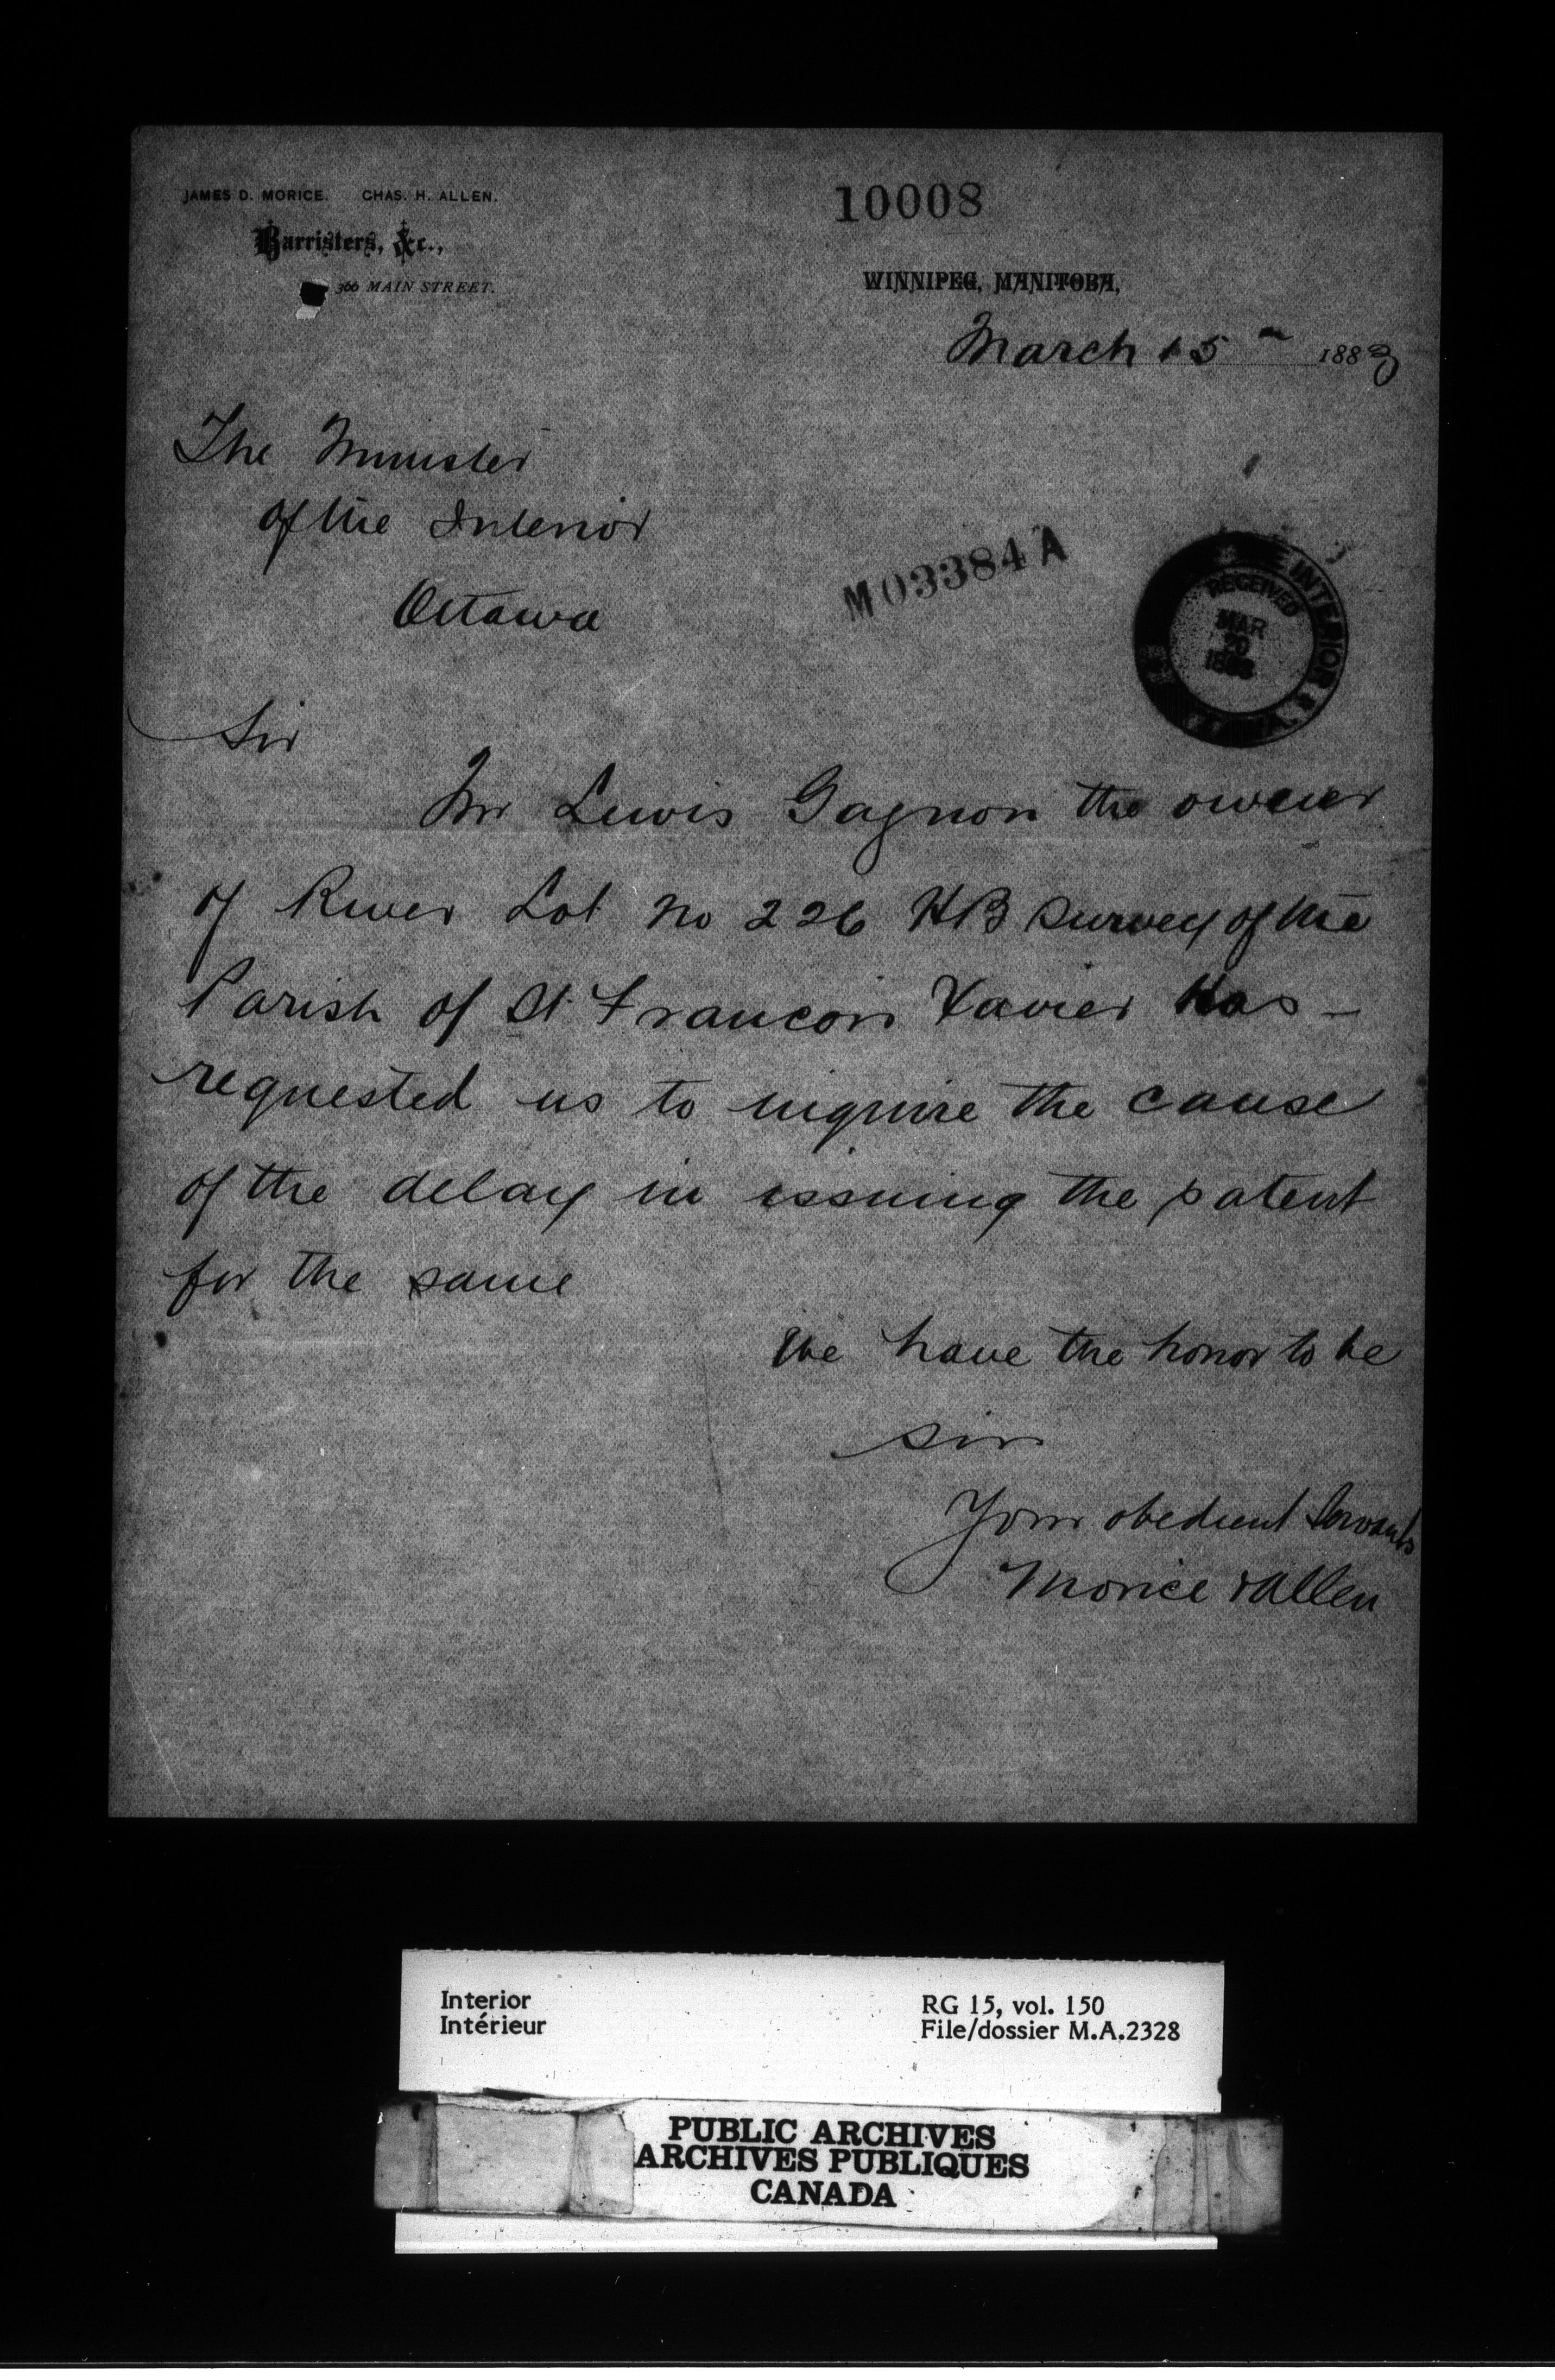 JAMES D. MORICE. CHAS. H. ALLEN.
Barristers, &c.,
366 MAIN STREET.
10008
WINNIPEG, MANITOBA,
March 15th 1883
The Minister
of the Interior
Ottawa
M03384A
THE INTERIOR
RECEIVED
MAR
20
1883
Sir
Mr Lewis Gagnon the owner
of River Lot No 226 HB Survey of the
Parish of St Francois Xavier Has
requested us to inquire the cause
of the delay in issuing the patent
for the same
We have the honor to be
Sir
Your obedient Servants
Morice & Allen
Interior
Intérieur
RG 15, vol. 150
File/dossier M.A.2328
PUBLIC ARCHIVES
ARCHIVES PUBLIQUES
CANADA